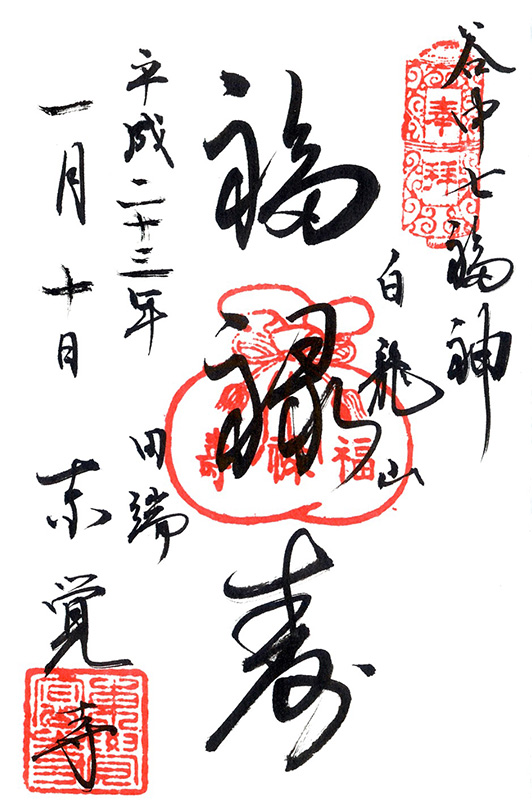 谷中七福神
奉拝
白龍山
福禄寿
福禄寿
平成二十三年
一月十日
田端
東覚寺